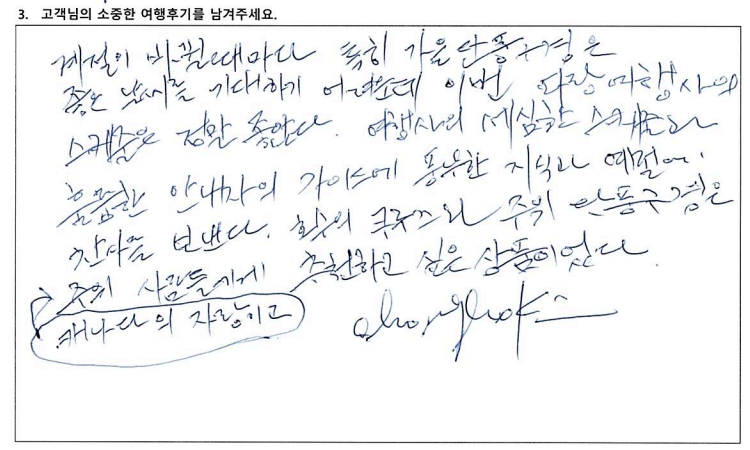 3. 고객님의 소중한 여행후기를 남겨주세요.
계절이 바뀔때마다 특히 가을 단풍구경은
좋은 날씨를 기대하기 어려운데 이번 파랑여행사의
스케줄은 정말 좋았다. 여행사의 세심한 스케줄과
훌륭한 안내자의 가이드에 풍부한 지식과 예절에
찬사를 보낸다. 호수의 크루즈와 주위 단풍구경은
주위 사람들에게 추천하고 싶은 상품이었다.
캐나다의 자랑이고